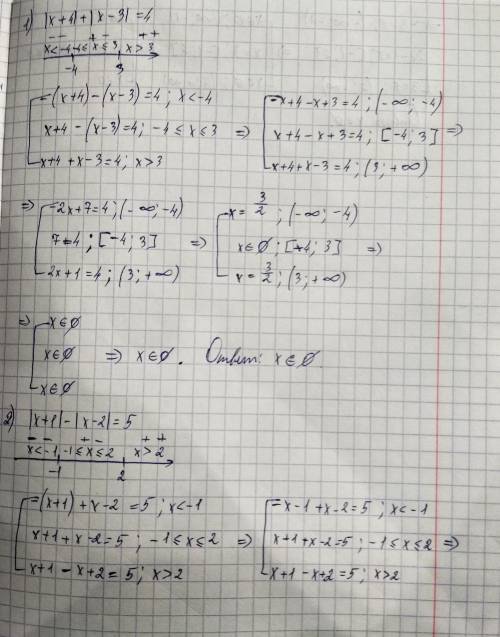 1) |x+4|+|x-3|=4
- - + - + +
x<-4 -4≤x≤3 x>3
-4 3
-(x+4)-(x-3)=4; x<-4
x+4-(x-3)=4; -4≤x≤3 ⇒
x+4+x-3=4; x>3
-x+4-x+3=4; (-∞;-4)
x+4-x+3=4; [-4;3] ⇒
x+4+x-3=4; (3;+∞)
⇒ -2x+7=4; (-∞;-4)
7=4; [-4;3] ⇒
2x+1=4; (3;+∞)
x=3/2; (-∞;-4)
x∈∅; [-4;3] ⇒
x=3/2; (3;+∞)
⇒ x∈∅
x∈∅ ⇒ x∈∅. Ответ: x∈∅.
x∈∅
2) |x+1|-|x-2|=5
- - + - + +
x<-1 -1≤x≤2 x>2
-1 2
-(x+1)+x-2=5; x<-1
x+1+x-2=5; -1≤x≤2 ⇒
x+1-x+2=5; x>2
-x-1+x-2=5; x<-1
x+1+x-2=5; -1≤x≤2 ⇒
x+1-x+2=5; x>2